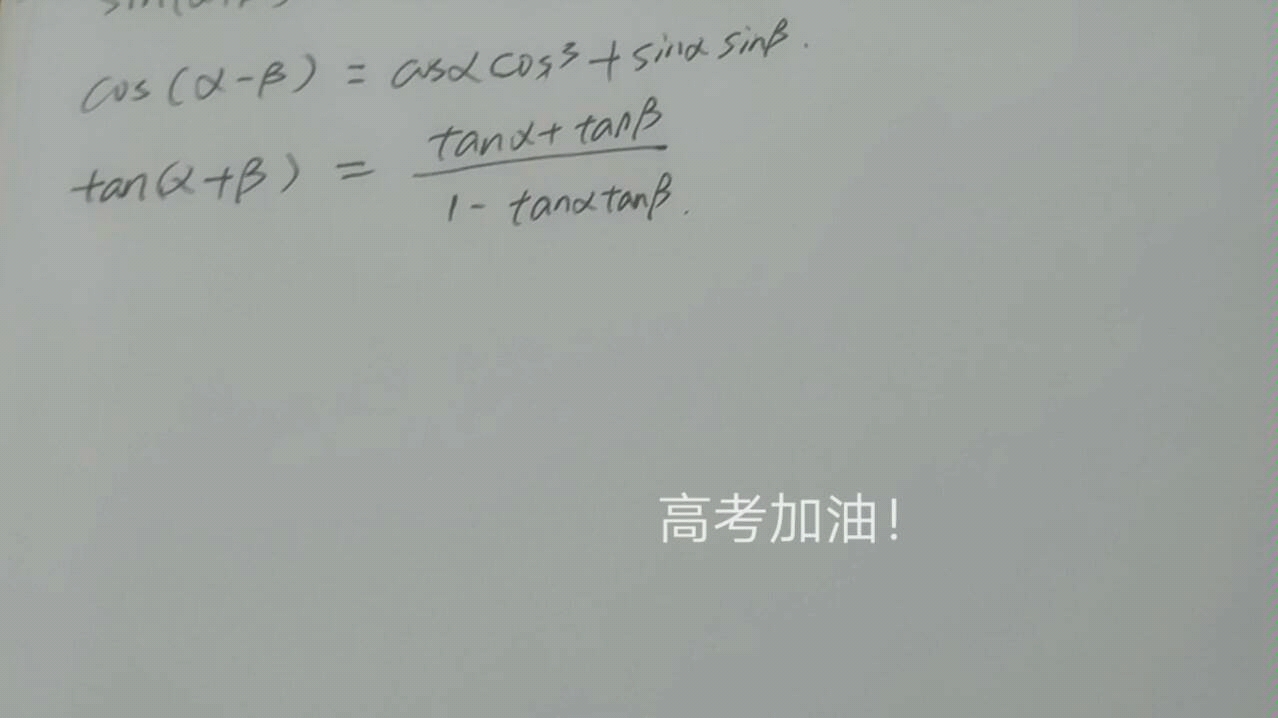 cos(α-β) = cosα cosβ + sinα sinβ.
tan(α+β) = \frac{tanα + tanβ}{1 - tanα tanβ}.
高考加油！